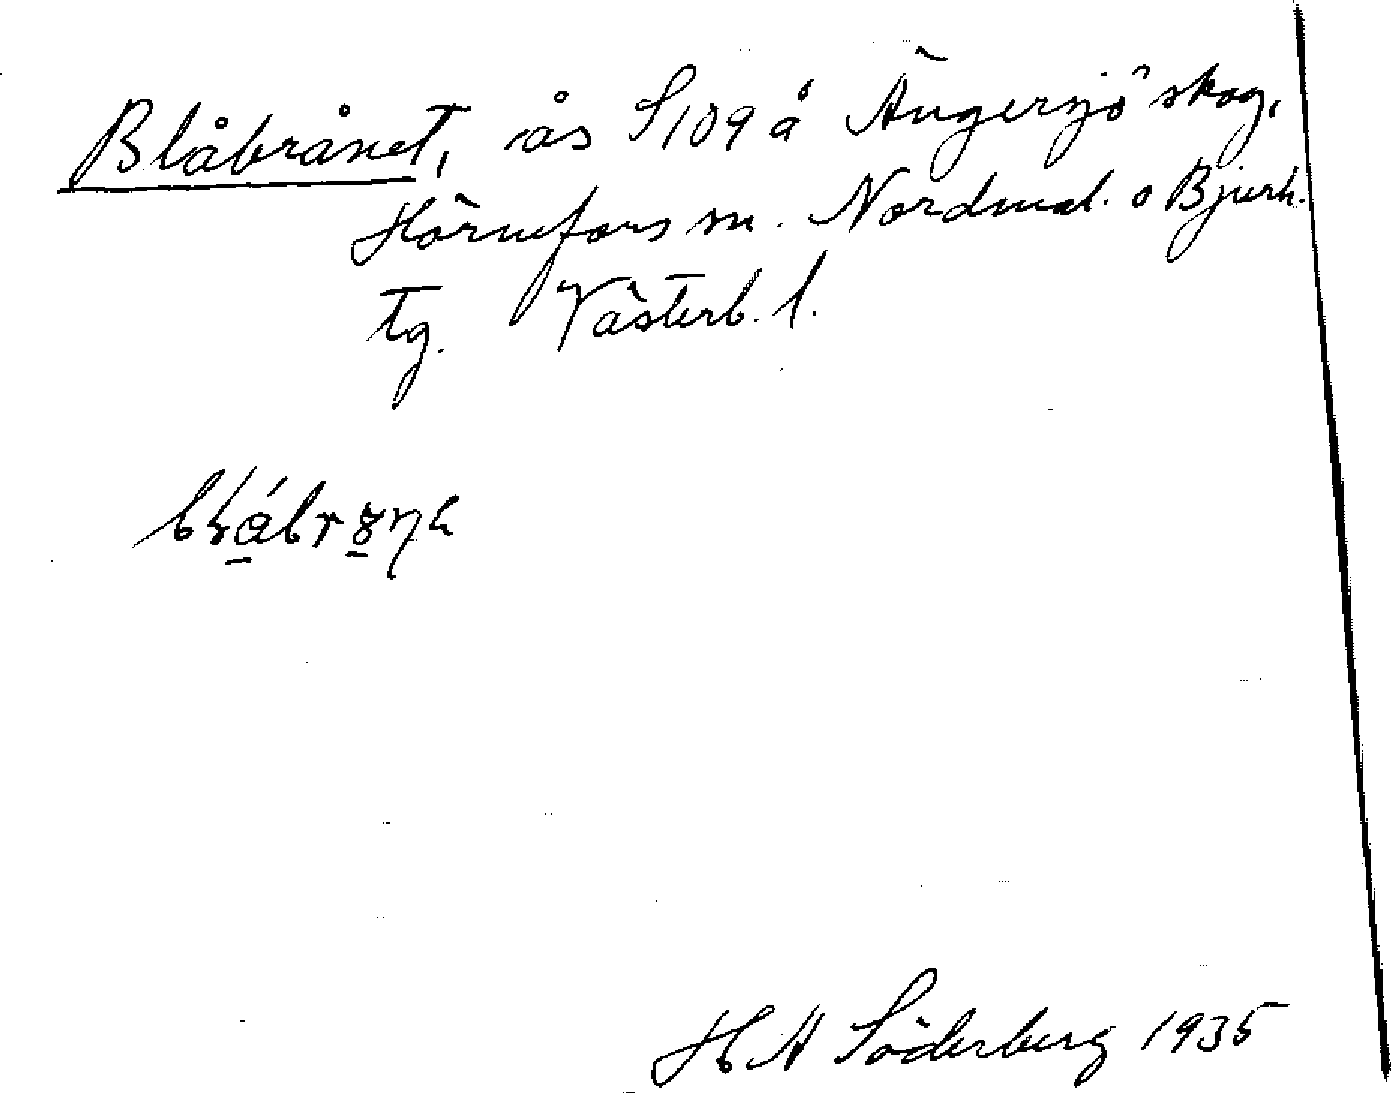 Blåbrånet, ås S109 å Ängersjö skog,
Hörnefors sn. Nordmal. o Bjurh.
tg. Västerb. l.
H A Söderberg 1935